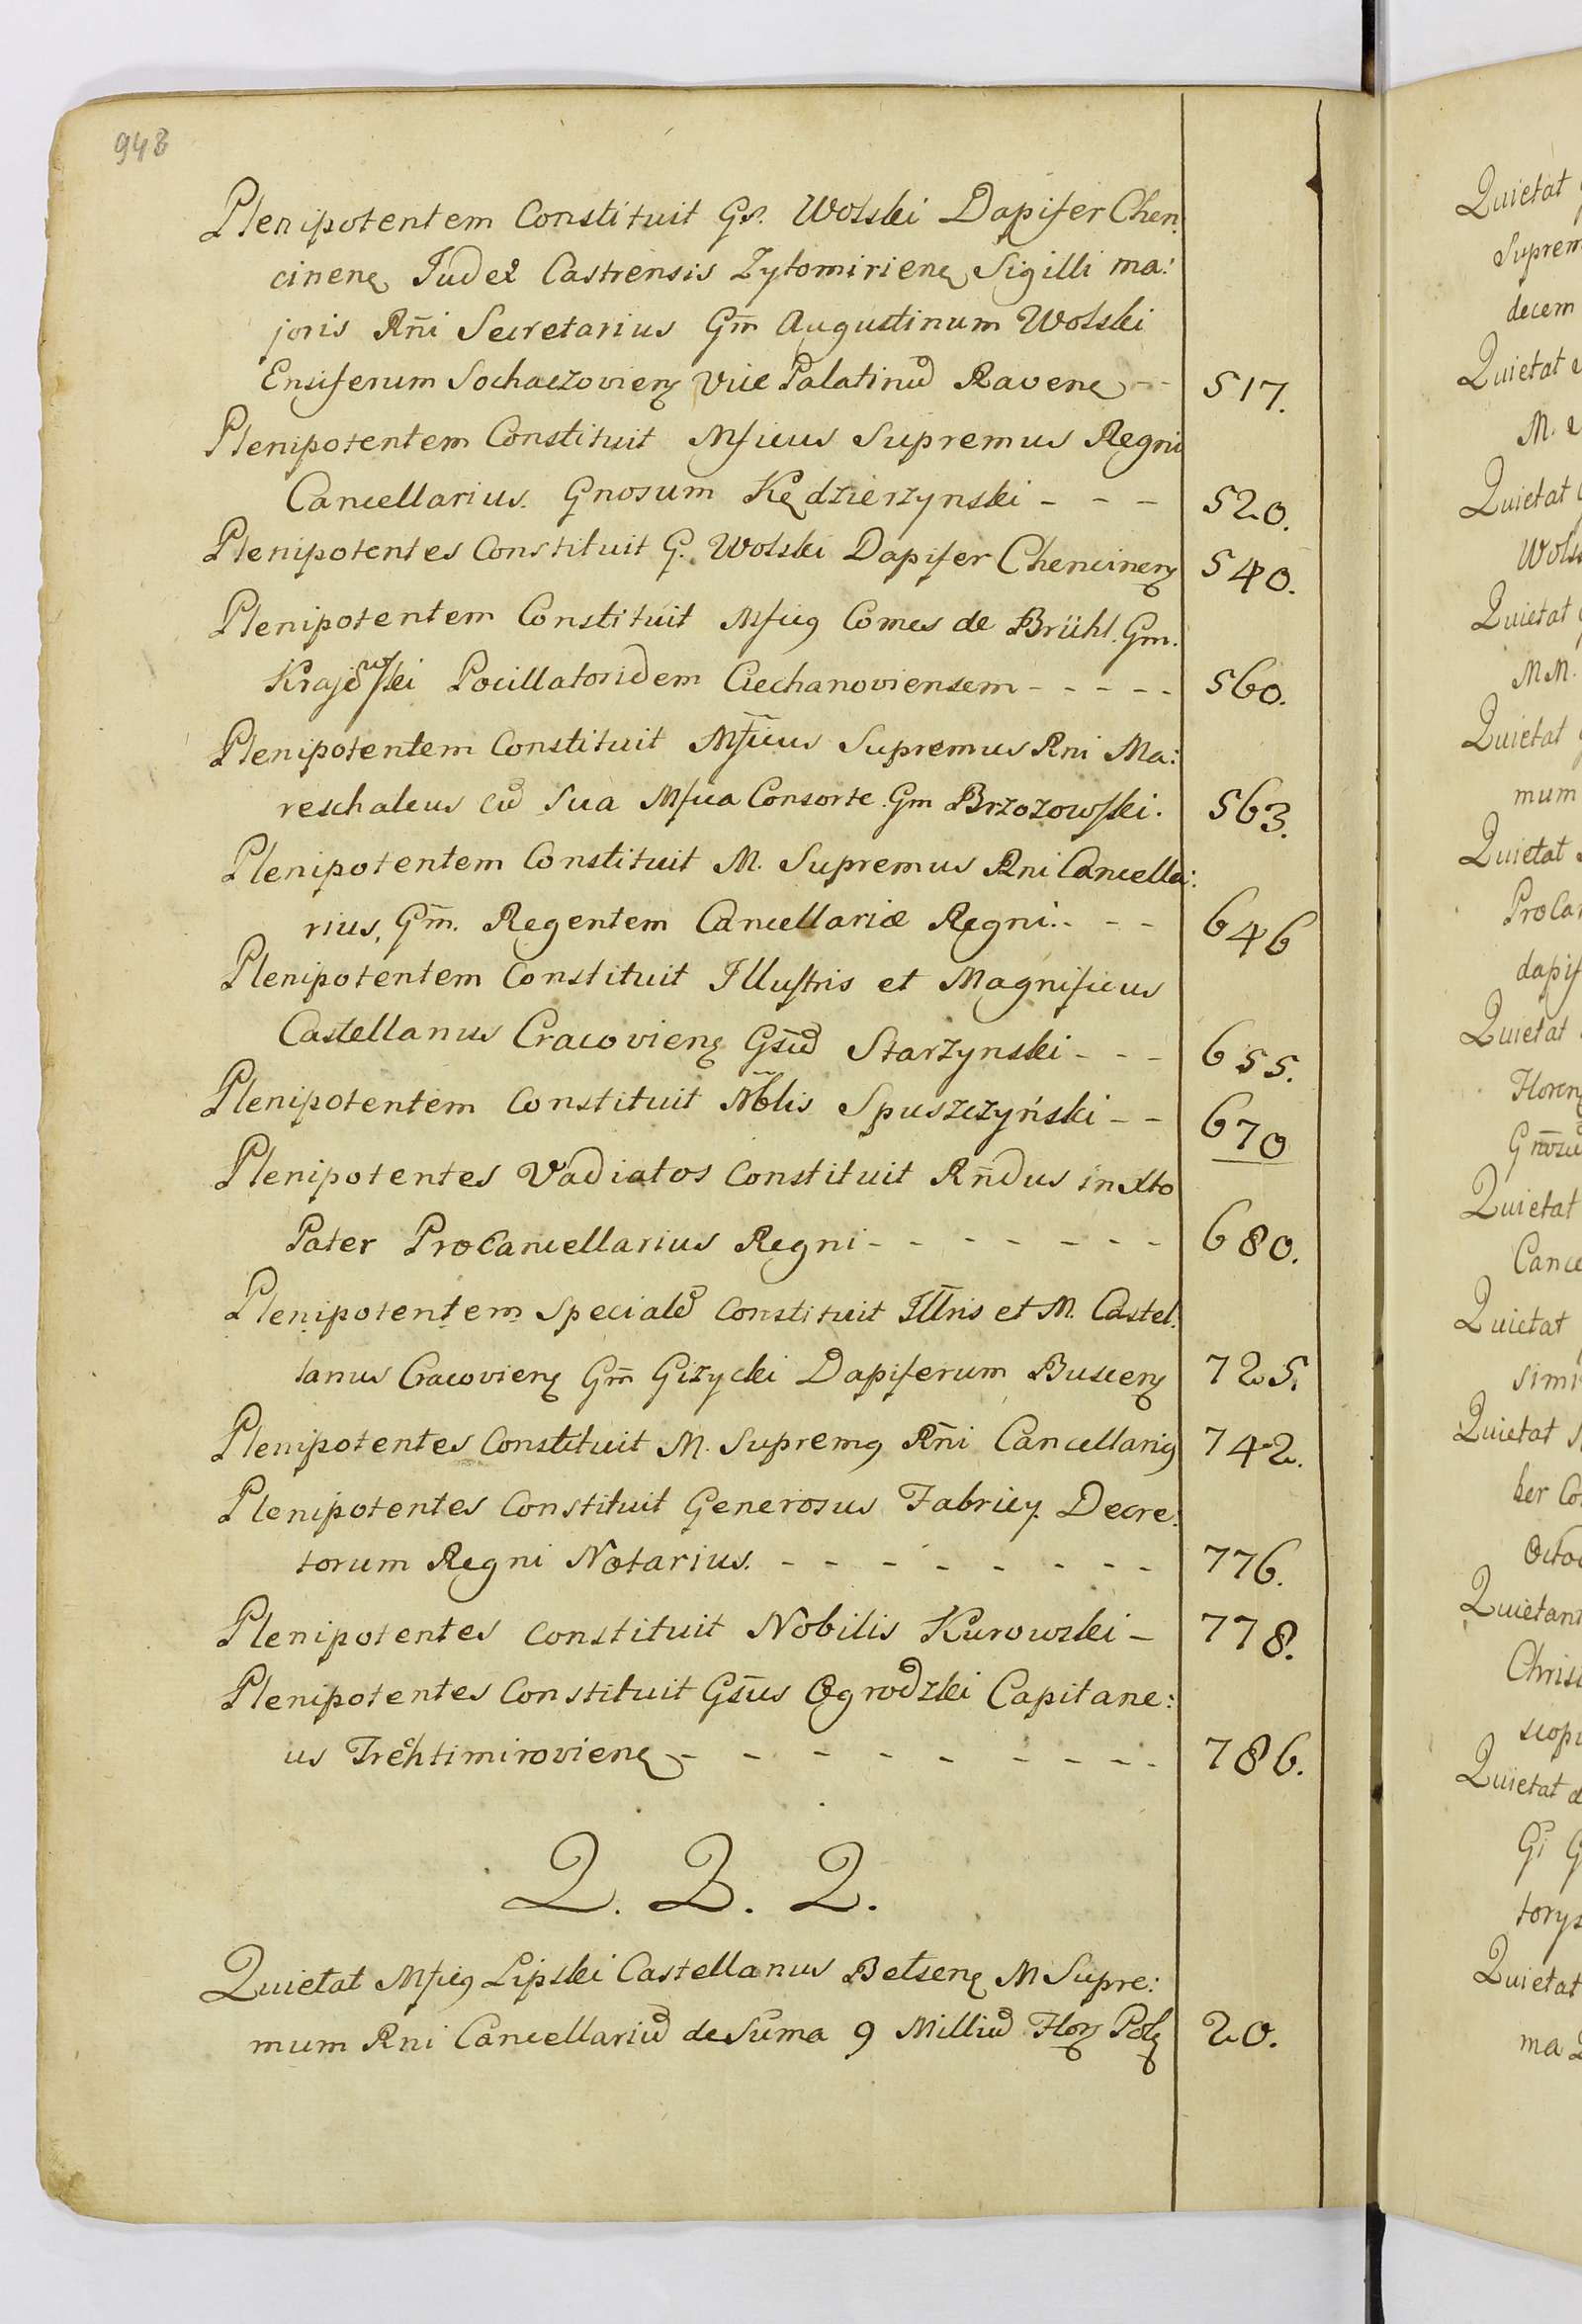 948
Plenipotentem Constituit Gs. Wolski Dapifer Chen:
cinenę Judex Castrensis Zytomirienę Sigilli ma:
joris Rn̄i Secretarius Gm̄ Augustinum Wolski
Ensiferum Sochaczovienę Vice Palatinū Ravenę - - 517.
Plenipotentem Constituit Mficus Supremus Regni
Cancellarius. Gnosum Kędzierzynski - - - 520.
Plenipotentes Constituit G. Wolski Dapifer Chencinenę 540.
Plenipotentem Constituit Mficꝯ Comes de Brühl. Gm.
Krajewski Pocillatoridem Ciechanoviensem - - - - - 560.
Plenipotentem Constituit Mficus Supremus Rni Ma:
reschalcus cū Sua Mfica Consorte Gm Brzozowski. 563.
Plenipotentem Constituit M. Supremus Rni Cancella:
rius, Gm̄. Regentem Cancellariæ Regni. - - - 646
Plenipotentem Constituit Illustris et Magnificus
Castellanus Cracovienę Gsū̄ Starzynski - - - 655.
Plenipotentem Constituit Nōblis Spuszczyński - - 670
Plenipotentes Vadiatos Constituit Rn̄dus in Xto
Pater ProCancellarius Regni - - - - - - - 680.
Plenipotentem Specialē Constituit Illris et M. Castel:
lanus Cracovienę Gm̄ Gizycki Dapiferum Buscenę 725.
Plenipotentes Constituit M. Supremꝯ Rn̄i Cancellariꝯ 742.
Plenipotentes Constituit Generosus Fabricy Decre:
torum Regni Notarius. - - - - - - - - 776.
Plenipotentes Constituit Nobilis Kurowski - 778.
Plenipotentes Constituit Gsūs Ogrodzki Capitane:
us Trechtimirovienę - - - - - - - - 786.
Q. Q. Q.
Quietat Mficꝯ Lipski Castellanus Belsenę M Supre:
mum Rni Cancellariū de Sūma 9 Milliū Florę Polę 20.
Quietat
Suprem
decem
Quietat
M.
Quietat
Wols
Quietat
MM.
Quietat
mum
Quietat
ProCan
dapif
Quietat
Floren
Quietat
Cance
Quietat
simi
Quietat
ber Co
Octo
Quietant
Chris
scop
Quietat
Gi G
torys
Quietat
ma